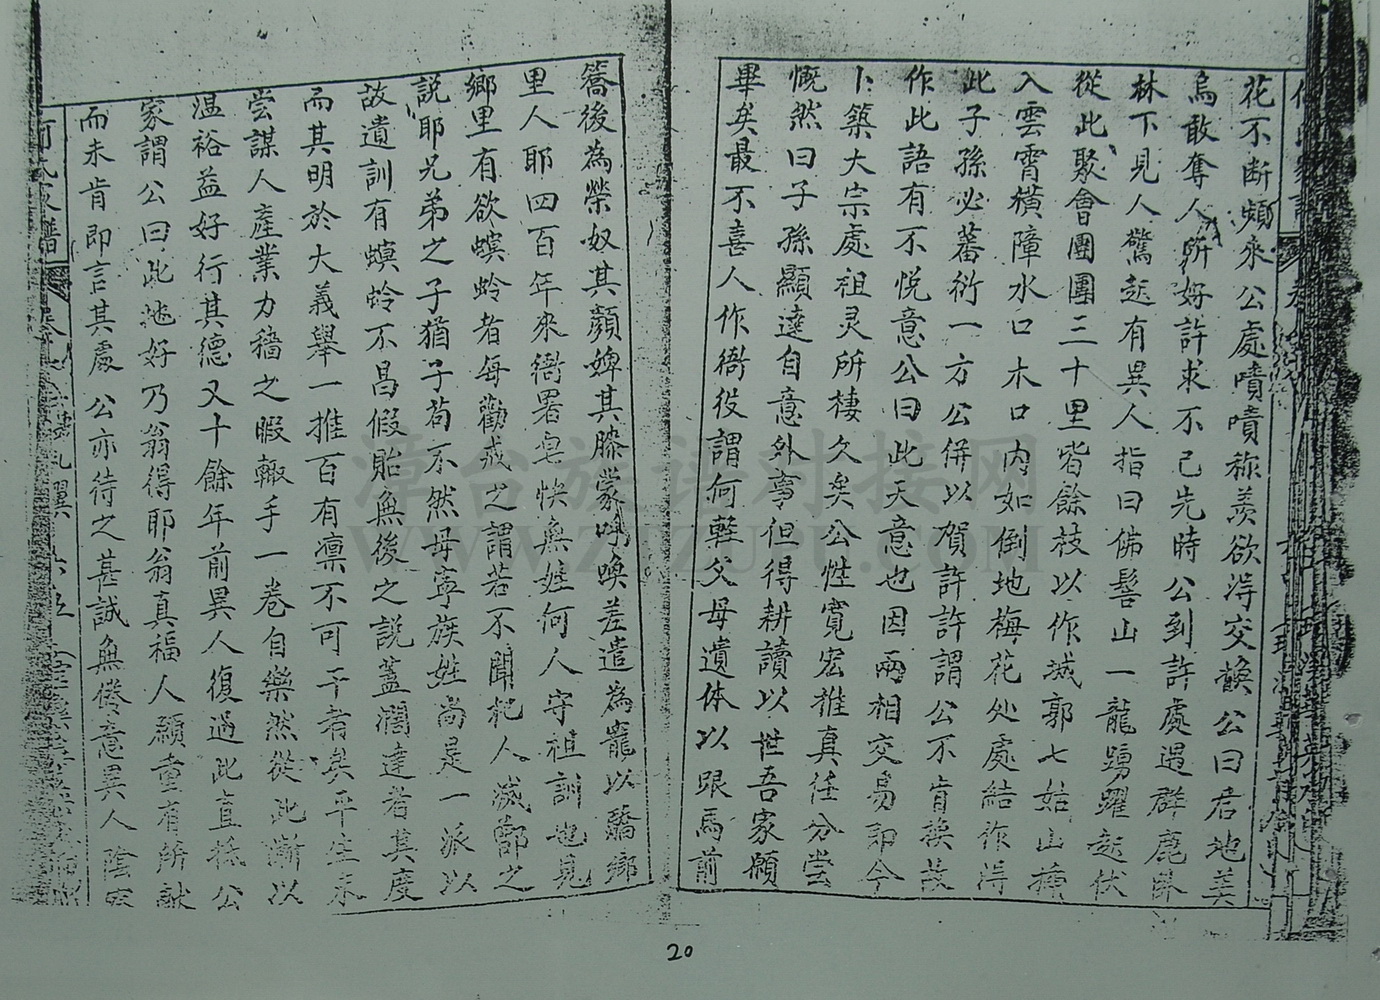 花不断頻來公處嘖嘖称羨欲淂交換公曰君地美
烏敢奪人所好許求不已先時公到許處遇群鹿卧
林下見人驚起有異人指曰佛髻山一龍踴躍起伏
從此聚會團團三十里皆餘枝以作城郭七始山
入雲霄橫障水口木口内如倒地梅花处處結作淂
此子孫必蕃衍一方公併以賀許許謂公不肯換故
作此語有不悦意公曰此天意也因兩相交易即今
卜築大宗處祖灵所棲久矣公性寬宏推真任分嘗
慨然曰子孫顯達自意外事但得耕讀以世吾家願
畢矣最不喜人作衙役謂何輕父母遺体以跟馬前
喬後為榮奴其顔婢其膝蒙呼喚差遣為寵以驕鄉
里人耶四百年來衙署皂快無姓何人守祖訓也見
鄉里有欲螟蛉者每勸戒之謂若不聞杞人滅鄫之
説耶兄弟之子猶子苟不然毋寧族姓尚是一派以
故遺訓有螟蛉不昌假貽無後之説蓋濶達者其度
而其明於大義舉一推百有凛不可干者矣平生未
嘗謀人産業力穡之暇輙手一卷自樂然從此漸以
温裕益好行其德又十餘年前異人復過此直抵公
家謂公曰此地好乃翁得耶翁真福人願重有所献
而未肯即言其處公亦待之甚誠無倦意異人陰
20
漳台族谱对接网
WWW.ZTZUPU.COM